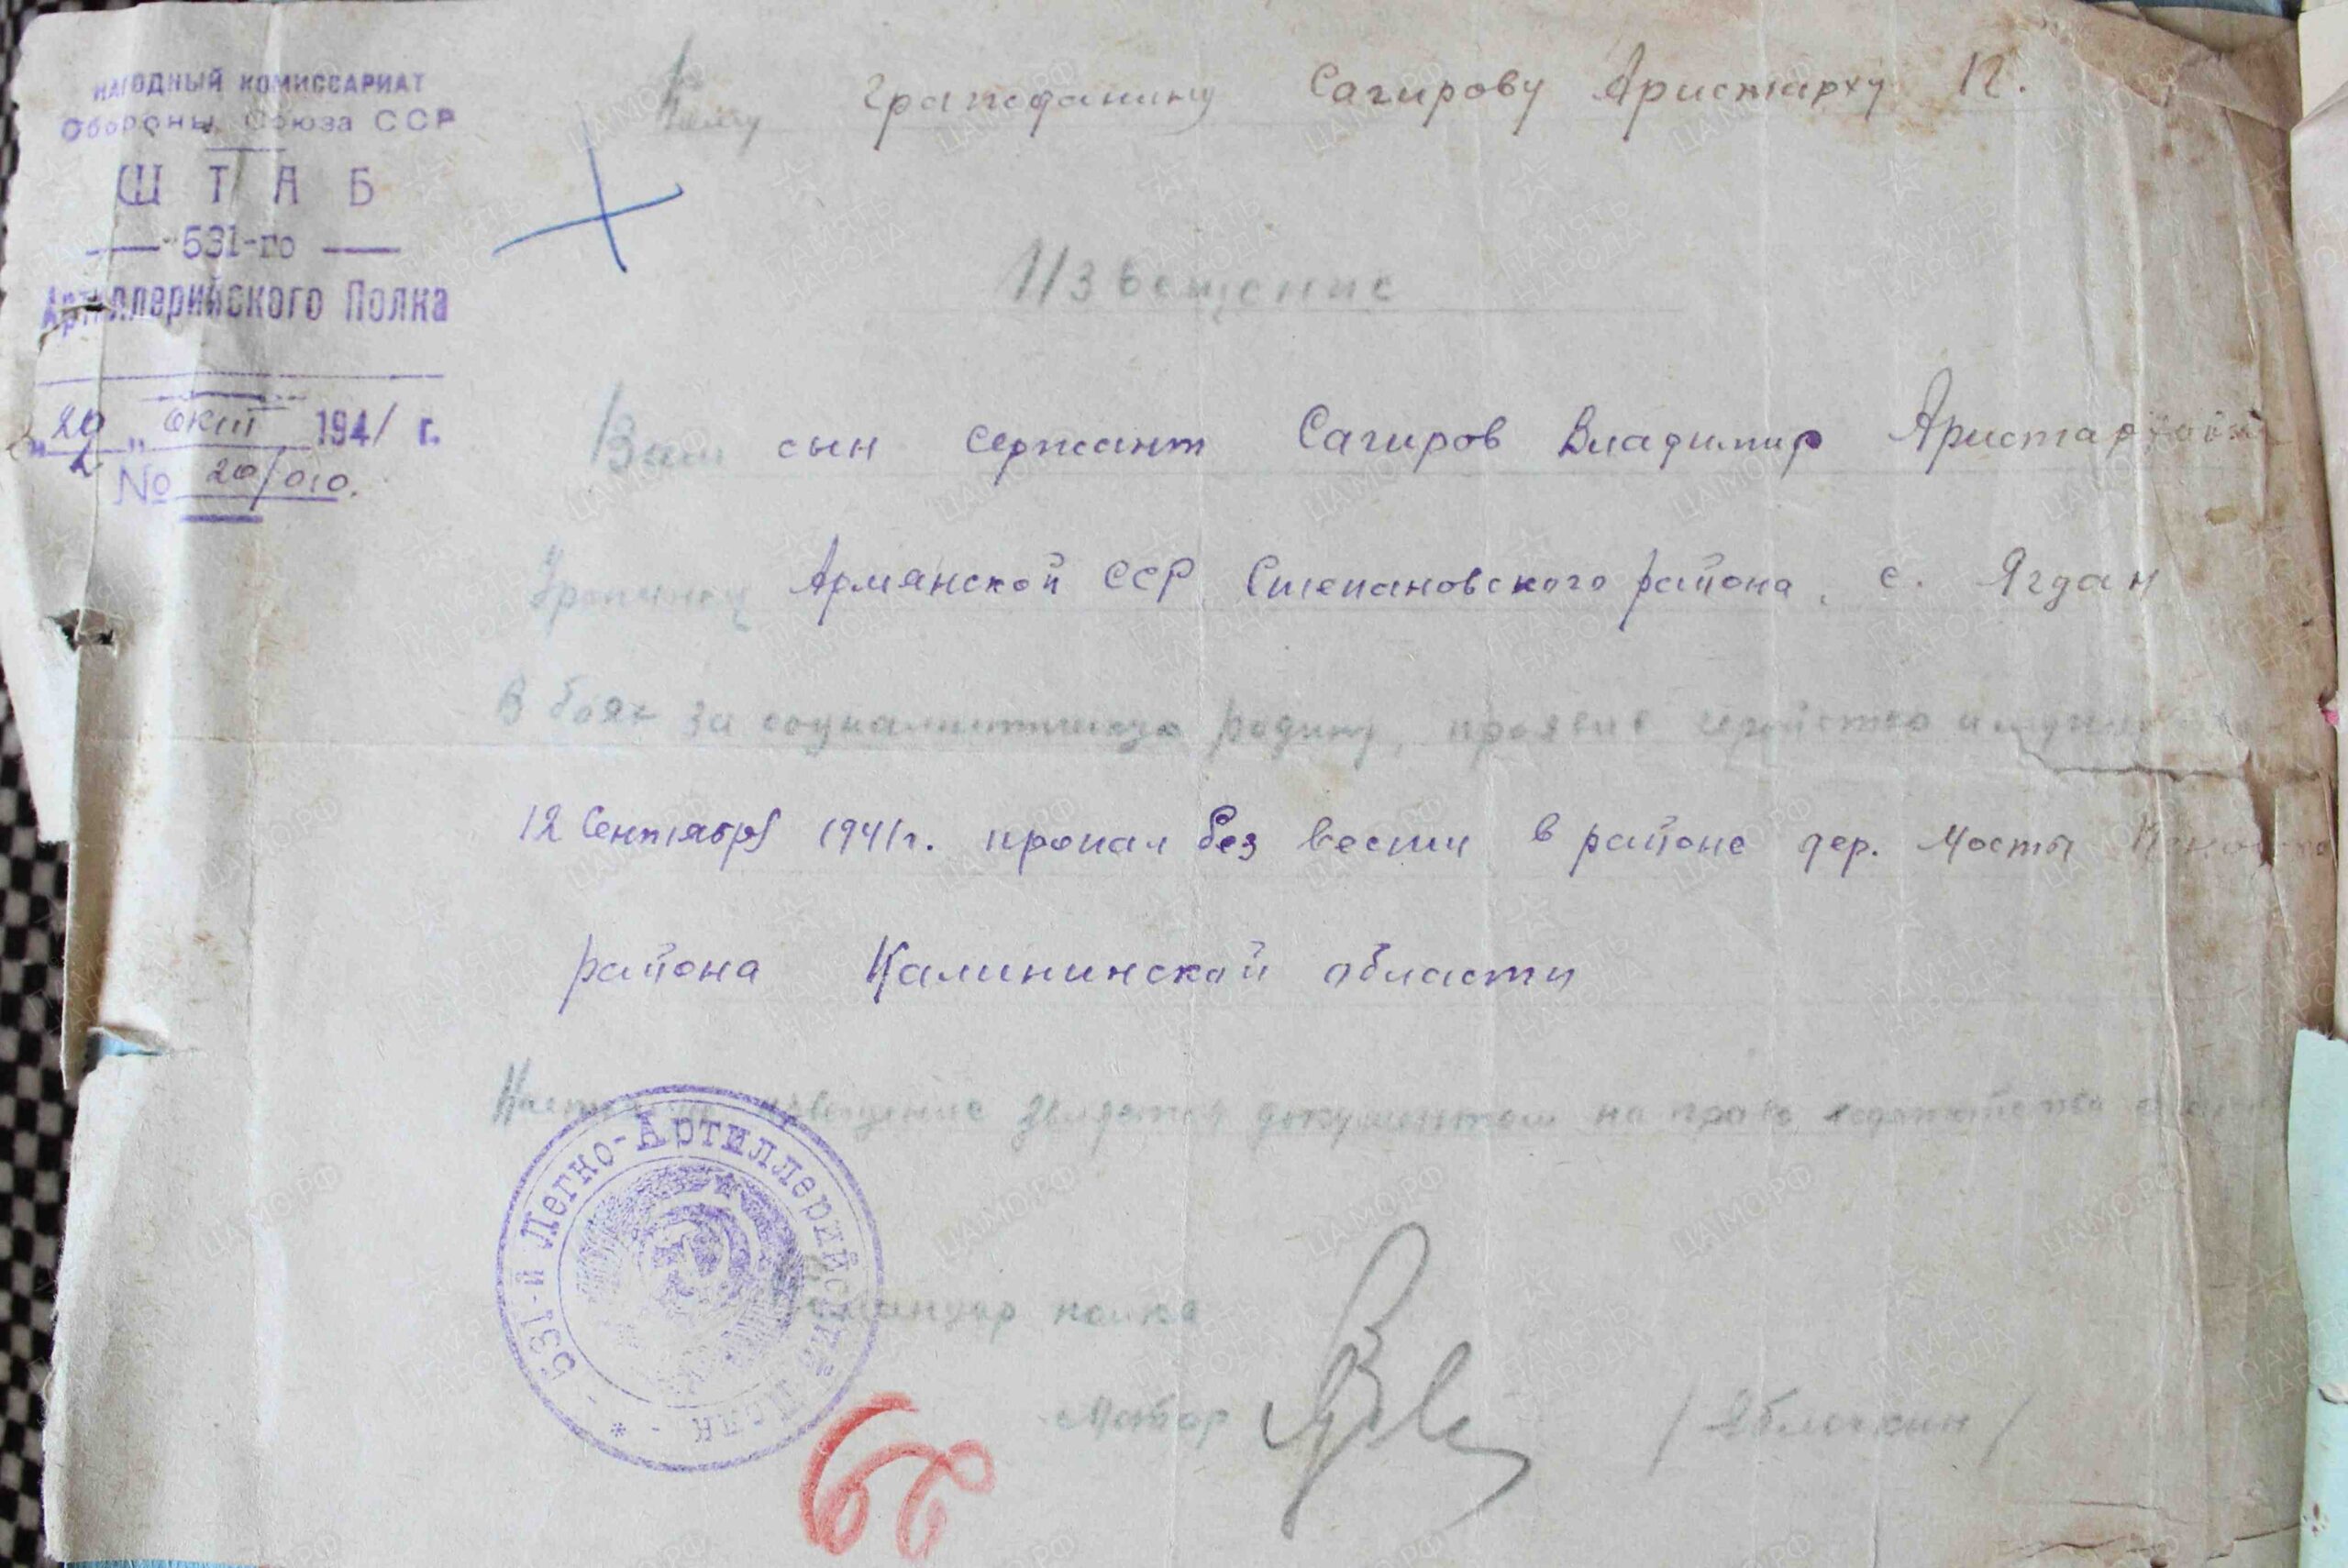 НАРОДНЫЙ КОМИССАРИАТ
Обороны Союза ССР
ШТАБ
531-го
Артиллерийского Полка
"20" окт 1941 г.
№ 20/010.
Кому гражданину Сагирову Аристарху П.
Извещение
Ваш сын сержант Сагиров Владимир
Уроженец Армянской ССР Степановского района, с. Ягдан
В боях за социалистическую родину, проявив геройство и
12 Сентября 1941г. пропал без вести в районе дер. Мосты
района Калининской области
Настоящее извещение является документом на право ходатайства
531-й Легко-Артиллерийский Полк
Командир полка
Майор / Яблочкин /
66
ЦАМО.РФ
ПАМЯТЬ НАРОДА